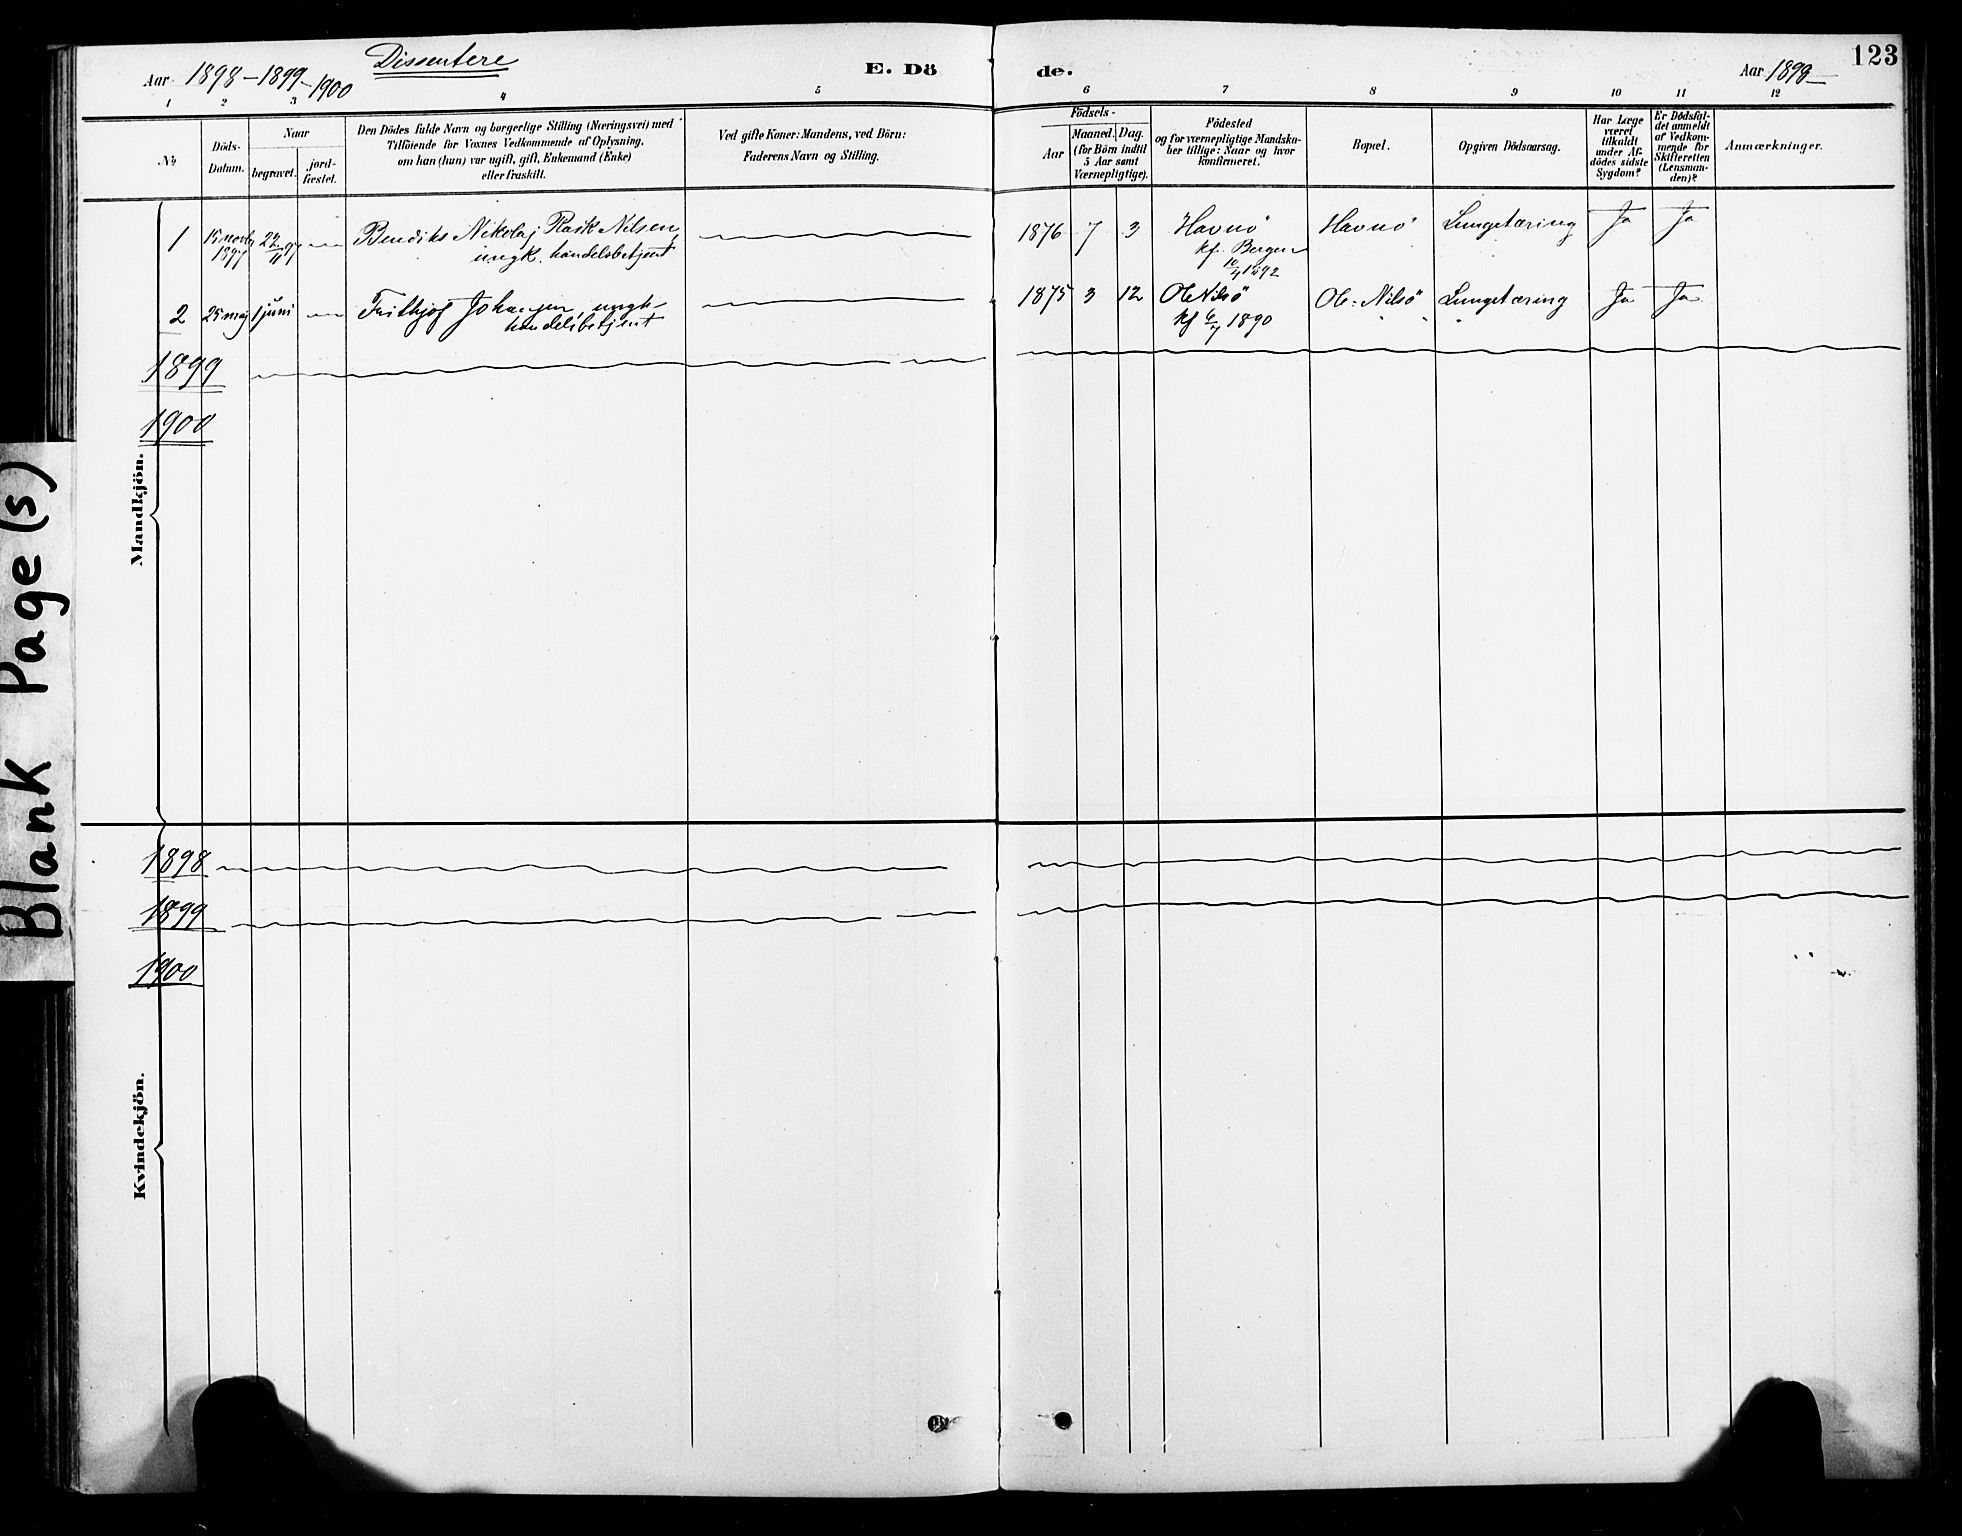 123
Dissentere
Aar 1898-1899-1900
E. Dö
de.
Aar 1898
1 2 3 4 5 6 7 8 9 10 11 12
№
Döds-
Datum.
Naar
begravet.
jord-
fæstet.
Den Dödes fulde Navn og borgerlige Stilling (Næringsvei) med
Tilföiende for Voxnes Vedkommende af Oplysning,
om han (hun) var ugift, gift, Enkemand (Enke)
eller fraskilt.
Ved gifte Koner: Mandens, ved Börn:
Faderens Navn og Stilling.
Födsels-
Aar
Maaned. Dag.
(for Börn indtil
5 Aar samt
Værnepligtige).
Födested
og for værnepligtige Mandska-
ber tillige: Naar og hvor
konfirmeret.
Bopæl.
Opgiven Dödsaarsag.
Har Læge
været
tilkaldt
under Af-
dödes sidste
Sygdom?
Er Dödsfal-
det anmeldt
af Vedkom-
mende for
Skifteretten
(Lensman-
den)?
Anmærkninger.
Mandkjön.
1 15 novbr 1897 Bendiks Nikolaj Rask Nilsen, 1876 7 3 Havnö Havnö Lungetæring Ja Ja
ungk. handelsbetjent
kf. Bergen
1892
2 25 maj 1 juni Frithjof Johansen, ungk- 1875 3 12 Ol: Nilsö Lungetæring Ja Ja
handelsbetjent
kf 6/7 1890
1899
1900
Kvindekjön.
1898
1899
1900
Blank Page(s)